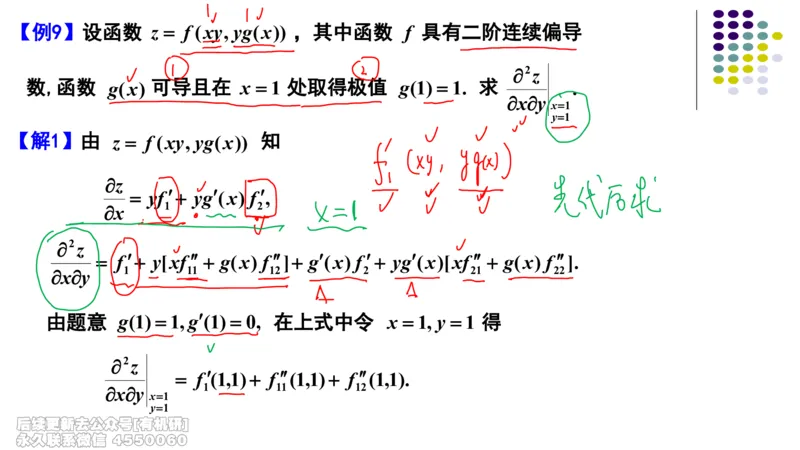 【例9】设函数 z = f(xy, yg(x)) ，其中函数 f 具有二阶连续偏导
① ②
数,函数 g(x) 可导且在 x = 1 处取得极值 g(1) = 1. 求 ∂²z/∂x∂y |x=1 y=1 .
【解1】由 z = f(xy, yg(x)) 知
f₁′ (xy, yg(x))
∂z/∂x = yf₁′ + yg′(x)f₂′,
x=1
先代后求
∂²z/∂x∂y = f₁′ + y[xf₁₁″ + g(x)f₁₂″] + g′(x)f₂′ + yg′(x)[xf₂₁″ + g(x)f₂₂″].
由题意 g(1) = 1, g′(1) = 0, 在上式中令 x = 1, y = 1 得
∂²z/∂x∂y |x=1 y=1 = f₁′(1,1) + f₁₁″(1,1) + f₁₂″(1,1).
后续更新去公众号[有机研]
永久联系微信 4550060